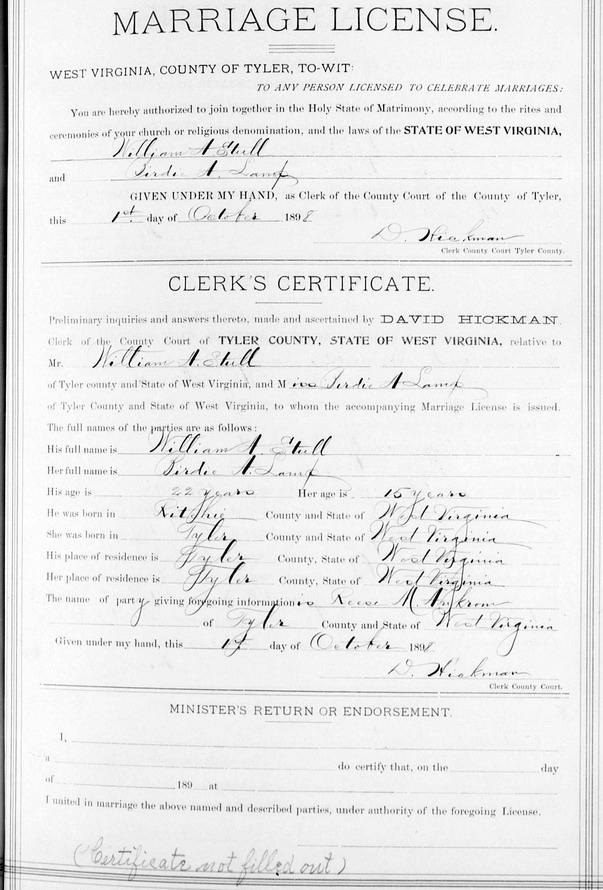 MARRIAGE LICENSE.
WEST VIRGINIA, COUNTY OF TYLER, TO-WIT:
TO ANY PERSON LICENSED TO CELEBRATE MARRIAGES:
You are hereby authorized to join together in the Holy State of Matrimony, according to the rites and
ceremonies of your church or religious denomination, and the laws of the STATE OF WEST VIRGINIA,
William A Stull
and Birdie A. Lamp
GIVEN UNDER MY HAND, as Clerk of the County Court of the County of Tyler,
this 1st day of October 1898
D. Hickman
Clerk County Court Tyler County.
CLERK'S CERTIFICATE.
Preliminary inquiries and answers thereto, made and ascertained by DAVID HICKMAN,
Clerk of the County Court of TYLER COUNTY, STATE OF WEST VIRGINIA, relative to
Mr. William A. Stull
of Tyler county and State of West Virginia, and Miss Birdie A Lamp
of Tyler County and State of West Virginia, to whom the accompanying Marriage License is issued.
The full names of the parties are as follows:
His full name is William A. Stull
Her full name is Birdie A. Lamp
His age is 22 years Her age is 15 years
He was born in Ritchie County and State of West Virginia
She was born in Tyler County and State of West Virginia
His place of residence is Tyler County, State of West Virginia
Her place of residence is Tyler County, State of West Virginia
The name of party giving foregoing information is Reese M. Ankrom
of Tyler County and State of West Virginia
Given under my hand, this 1st day of October 1898
D. Hickman
Clerk County Court.
MINISTER'S RETURN OR ENDORSEMENT.
I,
a do certify that, on the day
of 189 at
I united in marriage the above named and described parties, under authority of the foregoing License.
(Certificate not filled out)